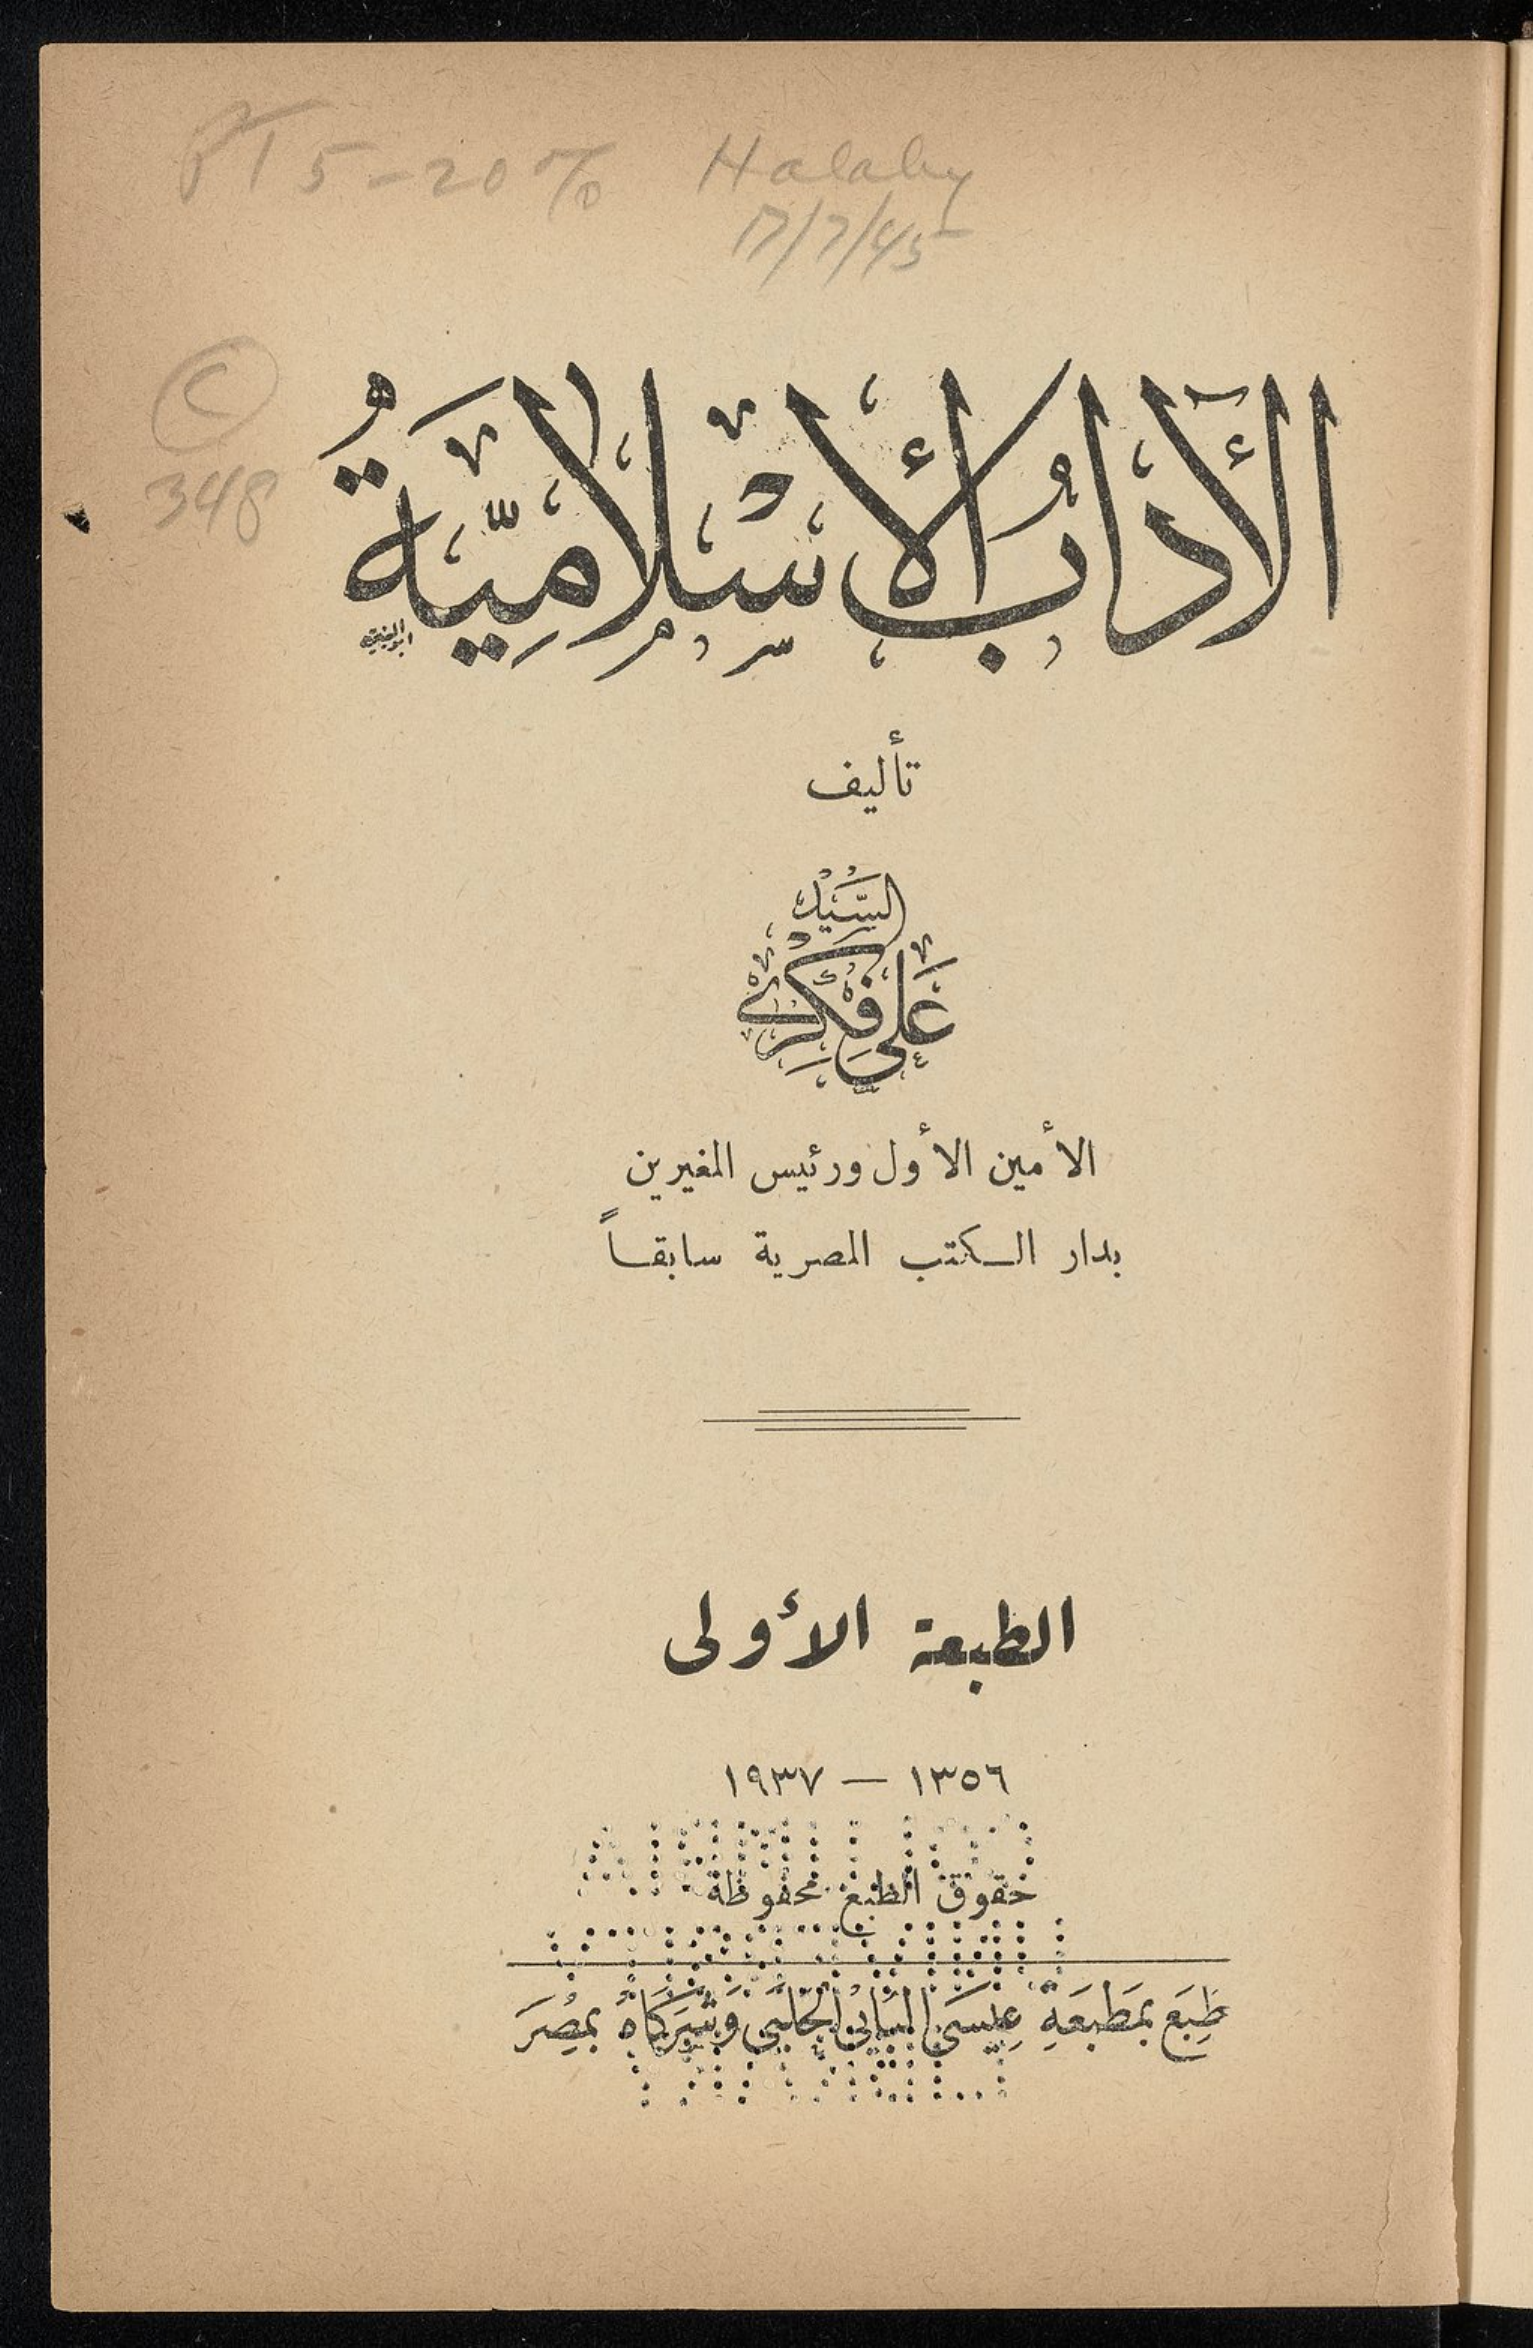 PT 5-20% Halaby
17/7/45
C
348
الآدَابُ الْإِسْلَامِيَّةُ
تأليف
السَّيِّدْ
عَلِي فِكْرِي
الأمين الأول ورئيس المغيرين
بدار الكتب المصرية سابقاً
الطبعة الأولى
١٣٥٦ — ١٩٣٧
حقوق الطبع محفوظة
طُبِعَ بمَطبَعَةِ عِيسَى البَابِى الحَلَبِى وَشُرَكَاهُ بمِصْرَ